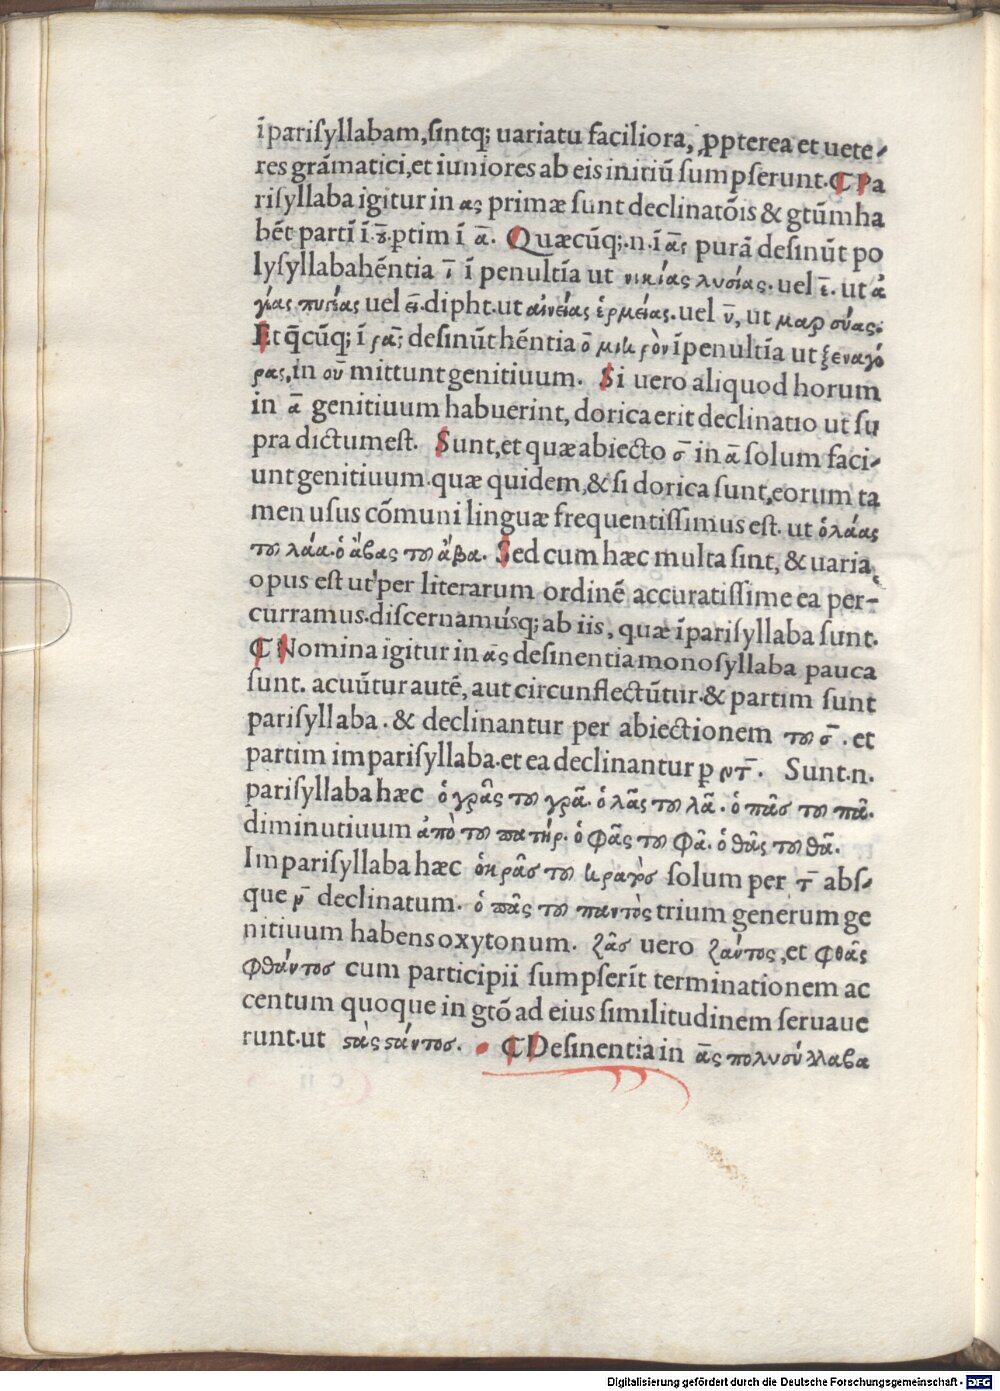 īpariſyllabam,ſintq; uariatu faciliora, ꝓpterea et uete-
res grāmatici,et iuniores ab eis initiū ſumpſerunt.¶ Pa
riſyllaba igitur in ας primæ ſunt declinatōis & gtūm ha
bēt partī ī ου̅.ptim ī α̅. Quæcūq;.n.ī ας̅ purā deſinūt po
lyſyllaba hēntia ι̅ ī penultīa ut νικίας λυσίας. uel ε̅. ut ἀ
γίας πυτίας uel ει̅.dipht.ut αἰνείας ἑρμείας. uel υ̅, ut μαρσύας.
Et q̄cūq; ī ρας̅ deſinūt hēntia ο̅ μικρὸν ī penultīa ut ξεναγό
ρας,in ου mittunt genitiuum. Si uero aliquod horum
in α̅ genitiuum habuerint, dorica erit declinatio ut ſu
pra dictum eſt. Sunt,et quæ abiecto σ̅ in α̅ ſolum faci-
unt genitiuum.quæ quidem,& ſi dorica ſunt,eorum ta
men uſus cōmuni linguæ frequentiſſimus eſt. ut ὁ λάας
του λάα.ὁ ἄβας του ἄβα. Sed cum hæc multa ſint, & uaria,
opus eſt ut per literarum ordinē accuratiſſime ea per-
curramus.diſcernamuſq; ab iis, quæ īpariſyllaba ſunt.
¶ Nomina igitur in ας̅ deſinentia monoſyllaba pauca
ſunt. acuūtur autē, aut circunflectūtur.& partim ſunt
pariſyllaba . & declinantur per abiectionem του σ̅ . et
partim impariſyllaba.et ea declinantur ꝑ ντ̅. Sunt.n.
pariſyllaba hæc ὁ γρᾶς του γρᾶ. ὁ λᾶς του λᾶ. ὁ πᾶσ του πᾶ.
diminutiuum ἀπὸ του πατήρ. ὁ φᾶς του φᾶ. ὁ θᾶς του θᾶ.
Impariſyllaba hæc ὁ κρᾶσ του κρατὸσ ſolum per τ̅ abſ-
que ν̅ declinatum. ὁ πᾶς του παντὸς trium generum ge
nitiuum habens oxytonum. ζᾶσ uero ζάντος,et φθᾶς
φθάντοσ cum participii ſumpſerīt terminationem ac
centum quoque in gtō ad eius ſimilitudinem ſeruaue
runt.ut ϛὰς ϛάντοσ. ¶ Deſinentia in ας̅ πολυσύλλαβα
Digitalisierung gefördert durch die Deutsche Forschungsgemeinschaft - DFG